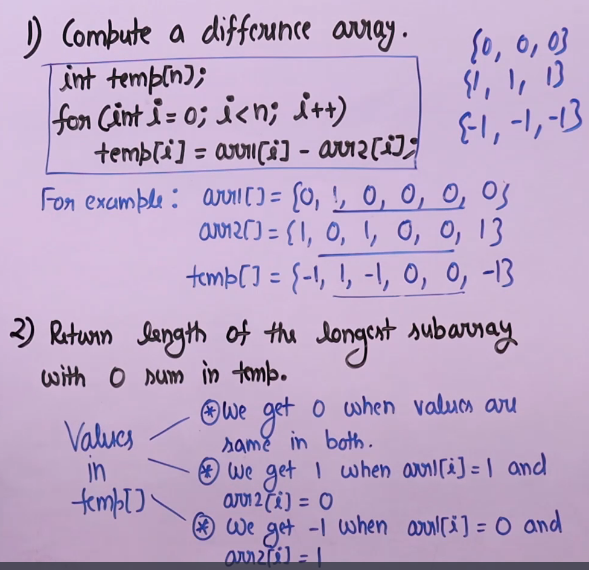 1) Compute a difference array.
{0, 0, 0}
{1, 1, 1}
{-1, -1, -1}
int temp[n];
for (int i = 0; i<n; i++)
temp[i] = arr1[i] - arr2[i];
For example: arr1[] = {0, 1, 0, 0, 0, 0}
arr2[] = {1, 0, 1, 0, 0, 1}
temp[] = {-1, 1, -1, 0, 0, -1}
2) Return length of the longest subarray
with 0 sum in temp.
Values
in
temp[]
* We get 0 when values are
same in both.
* We get 1 when arr1[i] = 1 and
arr2[i] = 0
* We get -1 when arr1[i] = 0 and
arr2[i] = 1